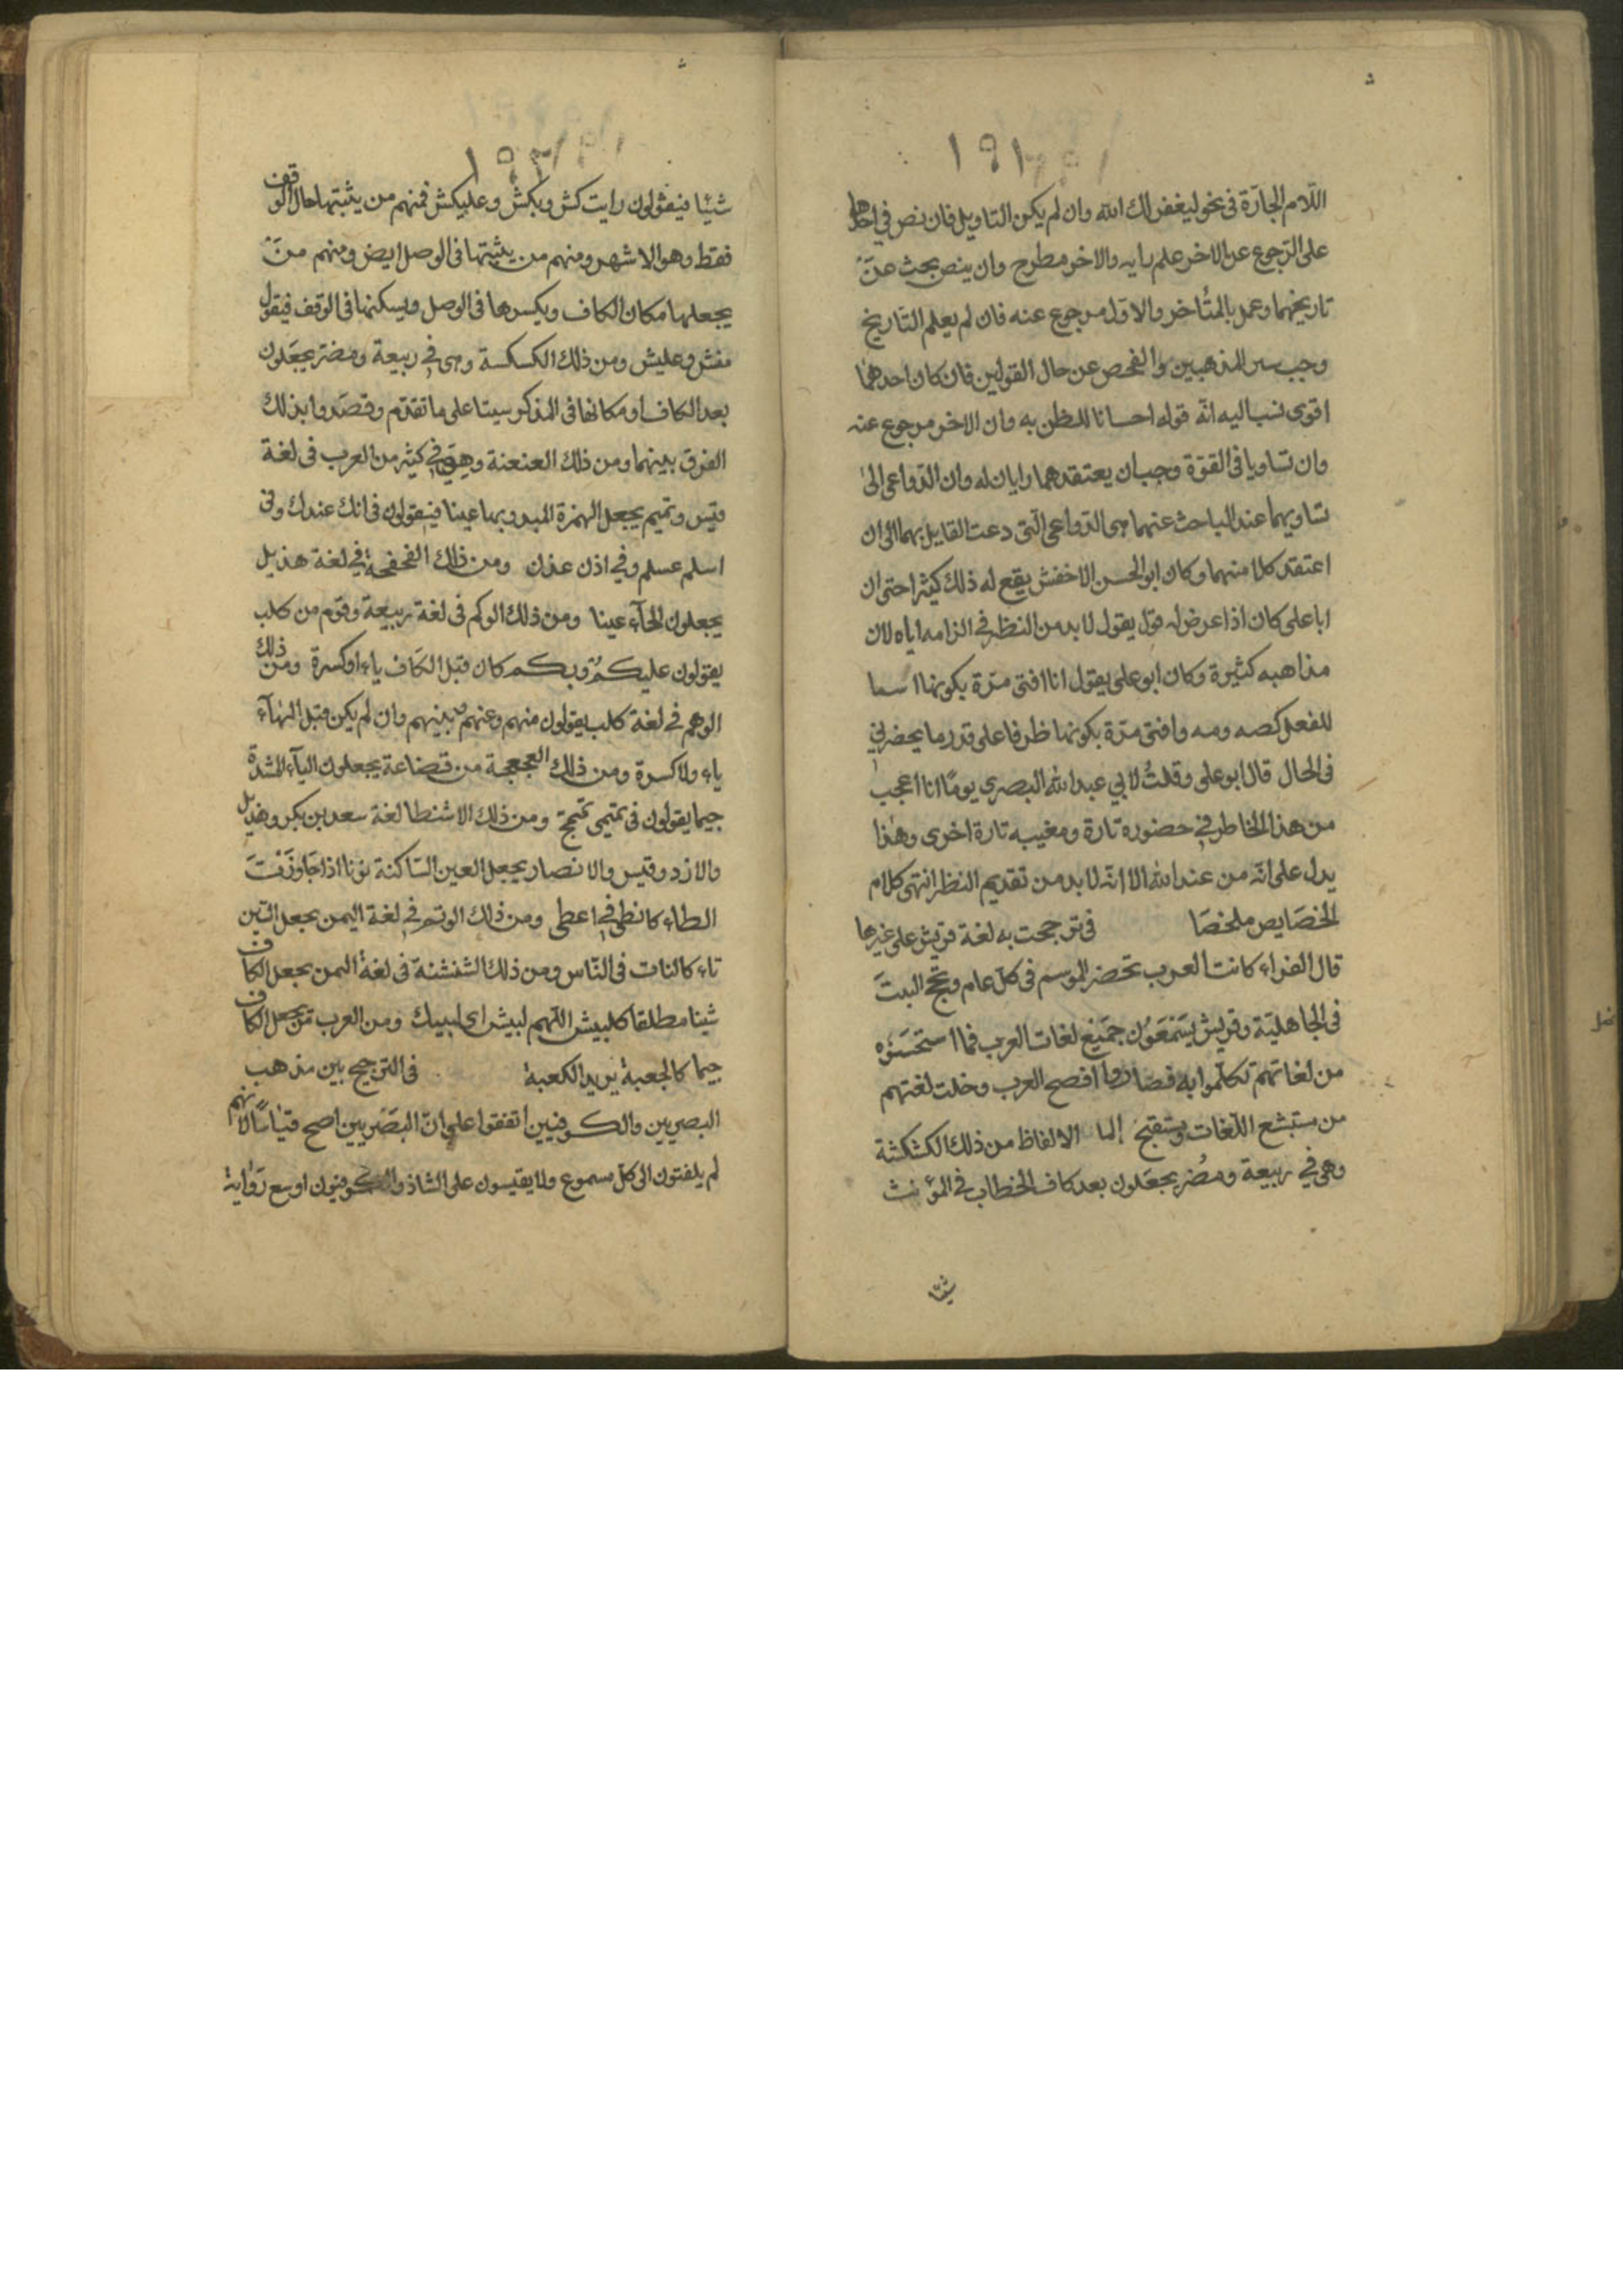 ١٩١
اللّام الجارّة فى نحو ليغفر لك الله وان لم يكن التاويل فان نص في احدهما
على الرّجوع عن الاخر علم رايه والاخر مطرح وان ينص بحث عن
تاريخهما وعمل بالمتأخر والاوّل مرجوع عنه فان لم يعلم التاريخ
وجب سبر المذهبين والفحص عن حال القولين فان كان احدهما
اقوى نسب اليه انّه قوله احسانا للظن به وان الاخر مرجوع عنه
وان تساويا فى القوّة وجب ان يعتقد هما رايان له وان الدّواعى الى
تساويهما عند الباحث عنهما هى الدّواعى الّتى دعت القايل بهما الى ان
اعتقد كلا منهما وكان ابو الحسن الاخفش يقع له ذلك كثيرا حتى ان
ابا على كان اذا عرض له قول يقول لا بد من النظر في الزامه اياه لان
مذاهبه كثيرة وكان ابو على يقول انا افتى مرّة بكونها اسما
للفعل كصه ومه وافتى مرّة بكونها ظرفا على قدر ما يحضرني
فى الحال قال ابو على وقلتُ لابي عبد الله البصري يومًا انا اعجب
من هذا الخاطر في حضوره تارة ومغيبه تارة اخرى وهذا
يدل على انّه من عند الله الا انّه لا بد من تقديم النظر انتهى كلام
الخصَايص ملخصَا فى ترجحت به لغة قريش على غيرها
قال الفراء كانت العرب تحضر الموسم فى كلّ عام وتحّج البيتَ
فى الجاهليّة وقريش يسَتمعَوُن جمَيع لغات العرب فما استحسَنوه
من لغاتهم تكلّموا به فصاروا افصح العرب وخلت لغتهم
من مستبشع اللّغات ومستقبح الالفاظ من ذلك الكشكشة
وهي في ربيعة ومضُر يجعَلون بعد كاف الخطاب في المؤنث
شيئا
شيئا فيقولون رايت كش وبكش وعليكش فمنهم من يثبتها حال الوقف
فقط وهو الاشهر ومنهم من يثبتها فى الوصل ايض ومنهم منَ
يجعلها مكان الكاف ويكسرها فى الوصل ويسكنها فى الوقف فيقول
منش وعليش ومن ذلك الكسكسة وهى في ربيعة ومضر يجعَلون
بعد الكاف او مكانها فى المذكر سينا على ما تقدّم وقصَدوا بذلك
الفرق بينهما ومن ذلك العنعنة وهي في كثير من العرب فى لغة
قيس وتميم يجعل الهمزة المبدو بها عينا فيقولون فى انك عندك وفى
اسلم عسلم وفي اذن عذن ومن ذلك الفحفحة في لغة هذيل
يجعلون الحآء عينا ومن ذلك الوكم فى لغة ربيعة وقوم من كلب
يقولون عليكم وبكم كان قبل الكَاف ياء او كسرة ومن ذلك
الوهم في لغة كلب يقولون منهم وعنهم وبينهم وان لم يكن قبل الهآء
ياء ولا كسرة ومن ذلك العجعجة من قضاعة يجعلون اليآء المشدّة
جيما يقولون فى تميمى تميمج ومن ذلك الاشنطا لغة سعد بن بكر وهذيل
والازد وقيس والانصار يجعل العين السّاكنة نونا اذا جَاوَرَتَ
الطاء كانطى في اعطى ومن ذلك الوتم في لغة اليمن بجعل السّين
تاء كالنات فى النّاس ومن ذلك الشنشنة فى لغة اليمن بجعل الكاف
شينا مطلقا كلبيش اللّهم لبيش اى لبيك ومن العرب من يجعل الكاف
جيما كالجعبة يريد الكعبة فى الترجيح بين مذهب
البصريين والكوفيين اتفقوا على انّ البَصَريين اصح قياسًا لانهم
لم يلفتون الى كلّ مسموع ولا يقيسون على الشاذ والكوفيون اوسع رَوَاية